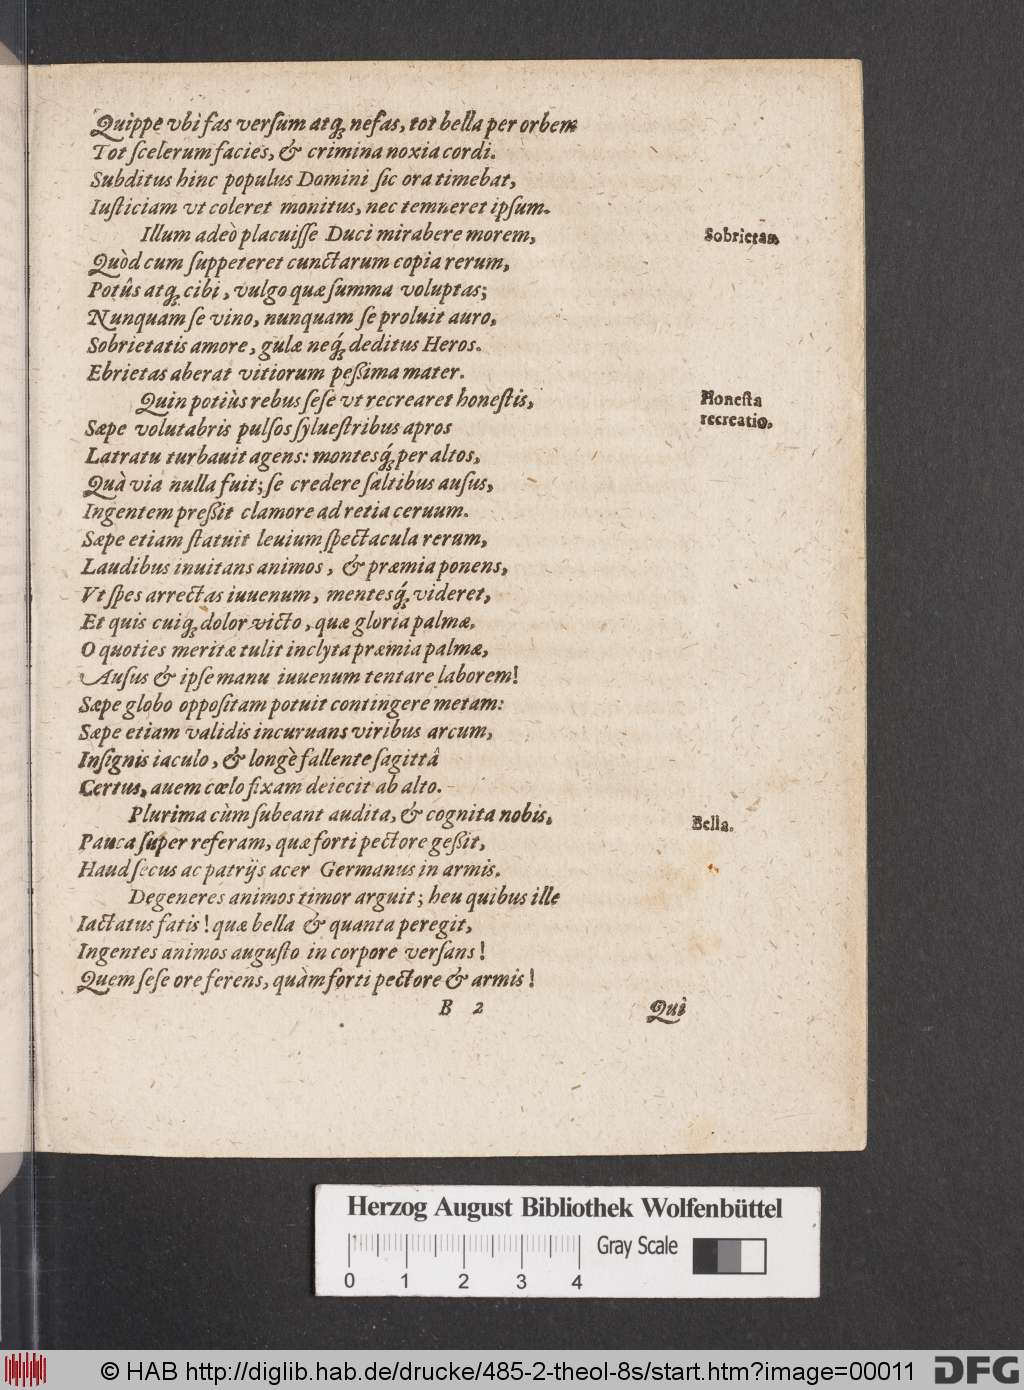 Quippe vbi fas versum atq́; nefas, tot bella per orbem
Tot scelerum facies, & crimina noxia cordi.
Subditus hinc populus Domini sic ora timebat,
Iusticiam vt coleret monitus, nec temneret ipsum.
Illum adeò placuisse Duci mirabere morem,
Sobrietas
Quòd cum suppeteret cunctarum copia rerum,
Potûs atq́; cibi, vulgo quæ summa voluptas;
Nunquam se vino, nunquam se proluit auro,
Sobrietatis amore, gulæ neq́; deditus Heros.
Ebrietas aberat vitiorum peßima mater.
Quin potiùs rebus sese vt recrearet honestis,
Honesta
recreatio.
Sæpe volutabris pulsos syluestribus apros
Latratu turbauit agens: montesq́; per altos,
Quà via nulla fuit; se credere saltibus ausus,
Ingentem preßit clamore ad retia ceruum.
Sæpe etiam statuit leuium spectacula rerum,
Laudibus inuitans animos, & præmia ponens,
Vt spes arrectas iuuenum, mentesq́; videret,
Et quis cuiq́; dolor victo, quæ gloria palmæ.
O quoties meritæ tulit inclyta præmia palmæ,
Ausus & ipse manu iuuenum tentare laborem!
Sæpe globo oppositam potuit contingere metam:
Sæpe etiam validis incuruans viribus arcum,
Insignis iaculo, & longè fallente sagittâ
Certus, auem cœlo fixam deiecit ab alto.
Plurima cùm subeant audita, & cognita nobis,
Bella.
Pauca super referam, quæ forti pectore geßit,
Haud secus ac patrijs acer Germanus in armis.
Degeneres animos timor arguit; heu quibus ille
Iactatus fatis! quæ bella & quanta peregit,
Ingentes animos augusto in corpore versans!
Quem sese ore ferens, quàm forti pectore & armis!
B 2 Qui
Herzog August Bibliothek Wolfenbüttel
Gray Scale
0 1 2 3 4
© HAB http://diglib.hab.de/drucke/485-2-theol-8s/start.htm?image=00011
DFG